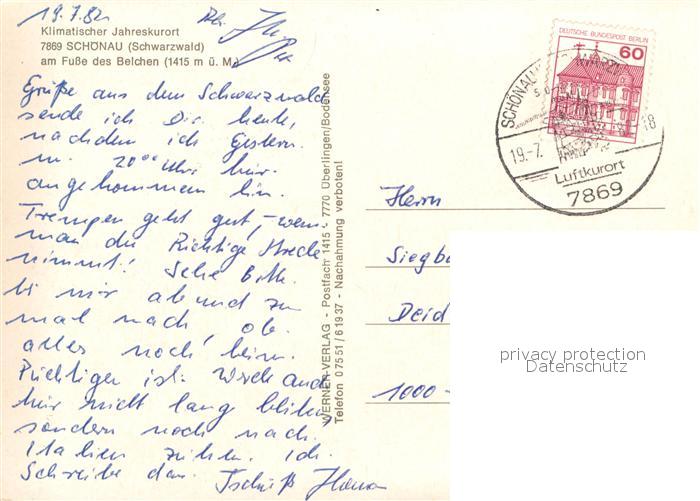 19.7.82
Klimatischer Jahreskurort
7869 SCHÖNAU (Schwarzwald)
am Fuße des Belchen (1415 m ü. M.)
Grüße aus dem Schwarzwald
sende ich Dir heute,
nachdem ich Gestern
20⁰⁰ Uhr hir
angekommen bin.
Trempen geht gut, – wenn
man die Richtige Strecke
nimmt! Sehe Bitte
bei mir ab und zu
mal nach ob
alles noch beim
Richtigen ist. Werde auch
hir nicht lange bleiben
sondern noch nach
Italien ziehen. Ich
Schreibe dan. Tschüß
WERNER-VERLAG - Postfach 1415 - 7770 Überlingen/Bodensee
Telefon 07551/61937 - Nachahmung verboten!
DEUTSCHE BUNDESPOST BERLIN
60
SCHÖNAU
19.-7.
18
Luftkurort
7869
Herrn
Siegb
Deid
1000-
privacy protection
Datenschutz